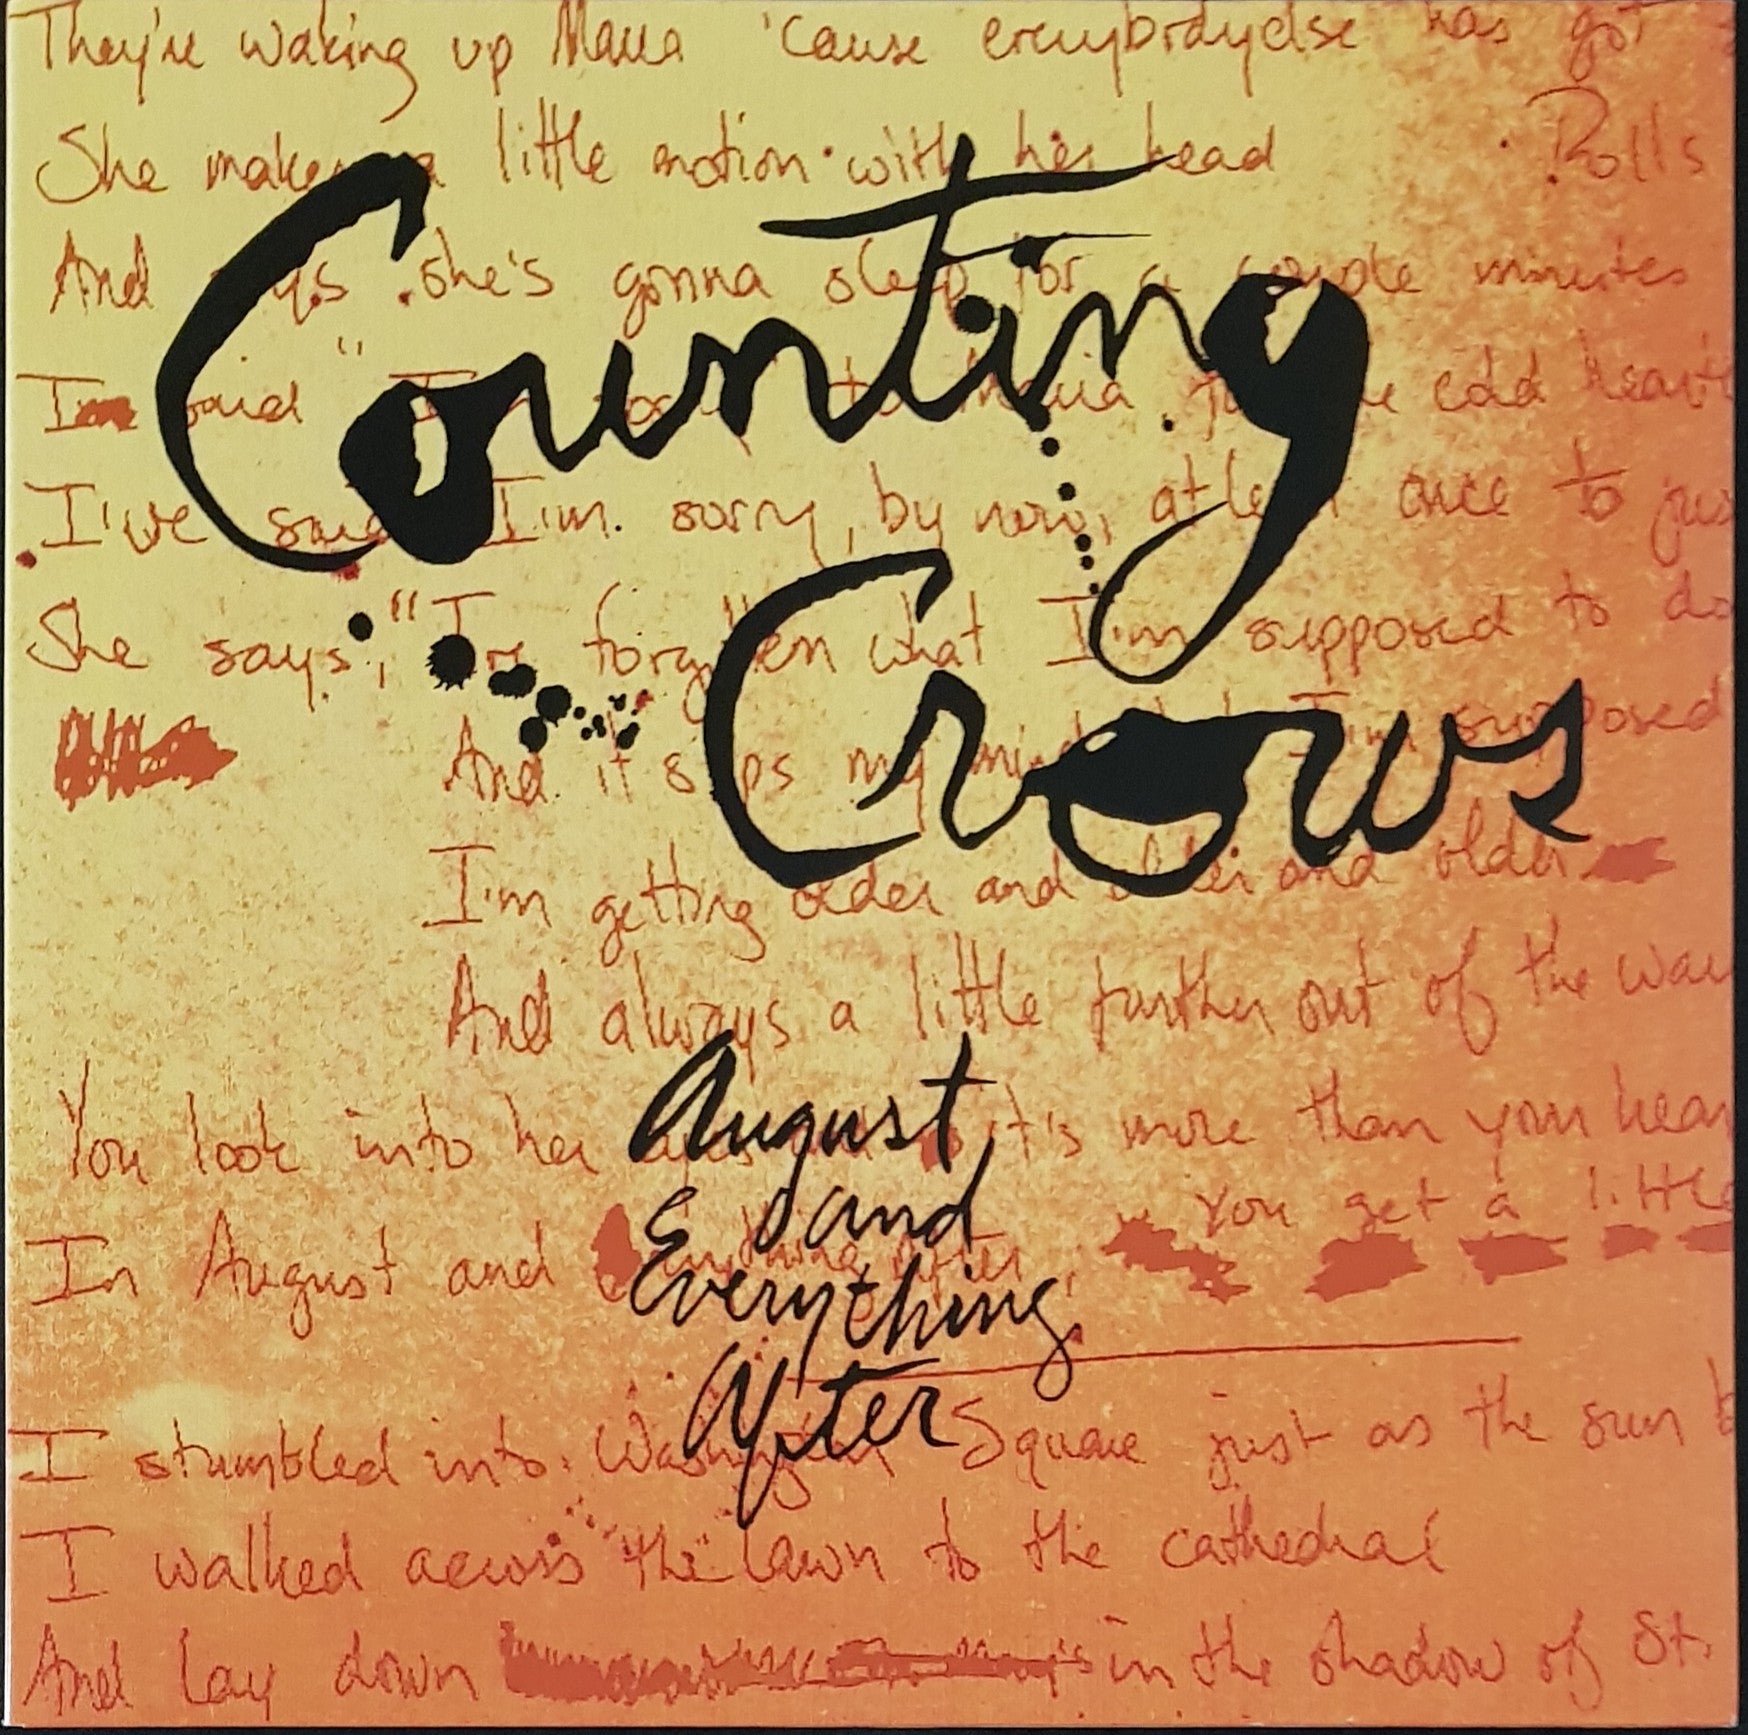 They're waking up Maria 'cause everybodyelse has got
She makes a little motion with her head Rolls
And she's gonna sleep for a couple minutes
Counting
I said "I'm to Maria cold hearted
I've said I'm sorry, by now, at least once to jus
Crows
She says, "I've forgotten what I'm supposed to do
And it slips my mind I'm supposed
I'm getting older and older and older
And always a little further out of the way
August
You look into her eyes it's more than your hear
and
You get a little
In August and Everything After,
Everything
After
I stumbled into Washington Square just as the sun b
I walked across the lawn to the cathedral
And lay down in the shadow of St.